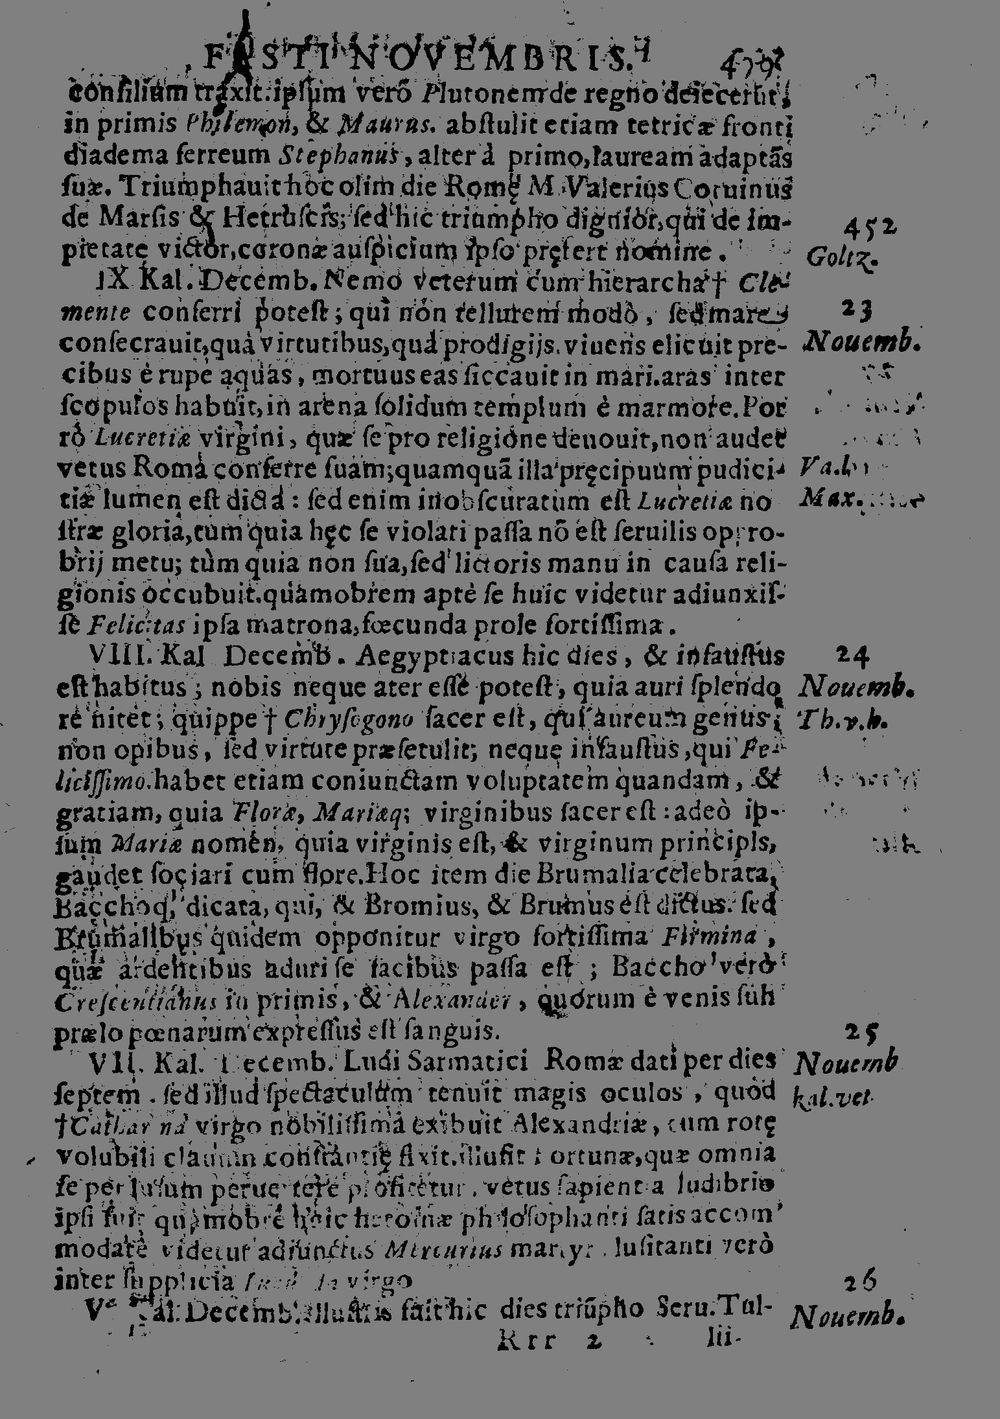 FASTI NOVEMBRIS. 499
consilium traxit. ipsum verò Plutonem de regno deiecerūt,
in primis Philemon, & Maurus. abstulit etiam tetricæ fronti
diadema ferreum Stephanus, alter à primo, lauream adaptās
suæ. Triumphauit hoc olim die Romę M. Valerius Coruinus
de Marsis & Hetruscis; sed hic triumpho dignior, qui de im-
pietate victor, coronæ auspicium ipso pręfert nomine.
452
Goltz.
IX Kal. Decemb. Nemo veterum cum hierarcha † Cle-
mente conferri potest; qui non tellurem modò, sed mare
consecrauit, quà virtutibus, quà prodigijs. viuens elicuit pre-
cibus è rupe aquas, mortuus eas siccauit in mari. aras inter
scopulos habuit, in arena solidum templum è marmore. Por
rò Lucretiæ virgini, quæ se pro religione deuouit, non audet
vetus Roma conferre suam; quamquā illa pręcipuum pudici-
tiæ lumen est dicta: sed enim inobscuratum est Lucretiæ no
stræ gloria, tum quia hęc se violari passa nō est seruilis oppro-
brij metu; tùm quia non sua, sed lictoris manu in causa reli-
gionis occubuit. quamobrem aptè se huic videtur adiunxis-
se Felicitas ipsa matrona, fœcunda prole fortissima.
23
Nouemb.
Val.
Max.
VIII. Kal Decemb. Aegyptiacus hic dies, & infaustus
est habitus; nobis neque ater esse potest, quia auri splendo
re nitet; quippe † Chrysogono sacer est, qui aureum genus,
non opibus, sed virtute præsetulit; neque infaustus, qui Fe-
licissimo. habet etiam coniunctam voluptatem quandam, &
gratiam, quia Floræ, Mariæq; virginibus sacer est: adeò ip-
sum Mariæ nomen, quia virginis est, & virginum principis,
gaudet sociari cum flore. Hoc item die Brumalia celebrata,
Bacchoq; dicata, qui, & Bromius, & Brumus est dictus. sed
Brumalibus quidem opponitur virgo fortissima Firmina,
quæ ardentibus aduri se facibus passa est; Baccho verò
Crescentianus in primis, & Alexander, quorum è venis sub
prælo pœnarum expressus est sanguis.
24
Nouemb.
Th.v.h.
VII. Kal. Decemb. Ludi Sarmatici Romæ dati per dies
septem. sed illud spectaculum tenuit magis oculos, quod
† Catharina virgo nobilissima exibuit Alexandriæ, cum rotę
volubili clauum constantię fixit. illusit Fortunæ, quæ omnia
se per lusum peruertere profitetur. vetus sapientia ludibrio
ipsi fuit quamobrē huic heroinæ philosophanti satis accom
modatè videtur adiunctus Mercurius martyr. lusitanti verò
inter supplicia virgo
25
Nouemb
kal.vet.
Kal. Decemb. illustris fait hic dies triūpho Seru. Tul-
26
Nouemb.
Rrr 2 lii-